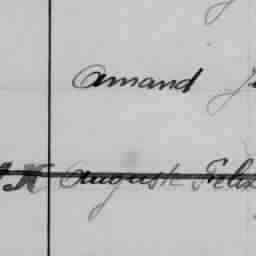 Amand
August Felix